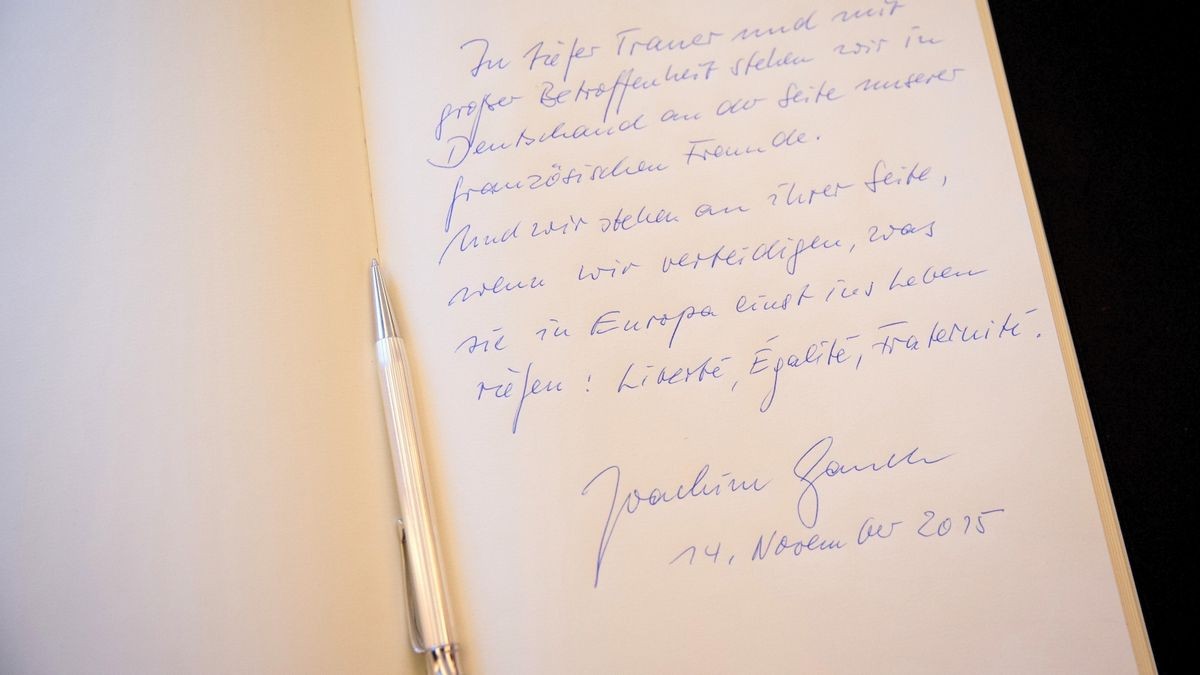 In tiefer Trauer und mit
großer Betroffenheit stehen wir in
Deutschland an der Seite unserer
französischen Freunde.
Und wir stehen an ihrer Seite,
wenn wir verteidigen, was
sie in Europa einst ins Leben
riefen: Liberté, Égalité, Fraternité.
Joachim Gauck
14. November 2015